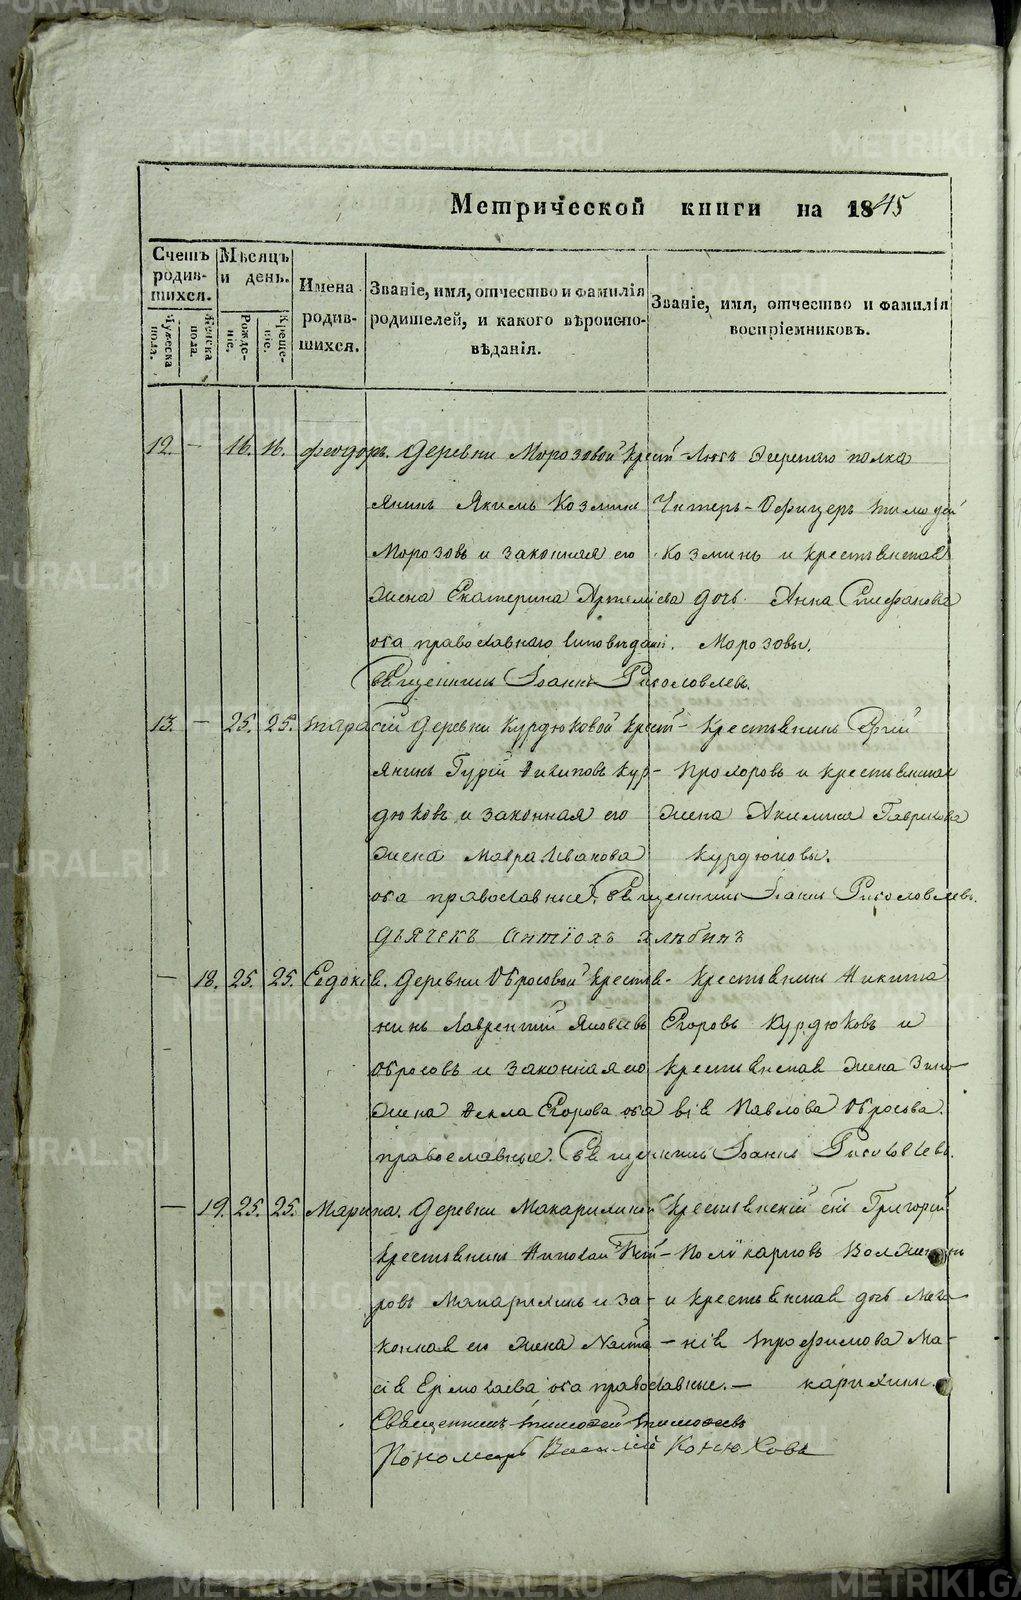 Метрической книги на 1845
Счетъ родив-шихся.
Мужеска пола.
Женска пола.
Мѣсяцъ и день.
Рожде-ніе.
Креще-ніе.
Имена родив-шихся.
Званіе, имя, отчество и фамилія родителей, и какого вѣроиспо-вѣданія.
Званіе, имя, отчество и фамилія воспріемниковъ.
12. — 16. 16. Феодоръ. Деревни Морозовой Крест- полка
янинъ Якимъ Козминъ Унтеръ-Офицеръ
Морозовъ и законная его Козминъ и крестьянская
жена Екатерина дочь Анна Стефанова
оба православнаго Морозовы.
Священникъ Іоаннъ
13. — 25. 25. Тарасій Деревни Курдюковой Крест- Крестьянинъ Сергій
янинъ Гурій Филиповъ Кур- Прохоровъ и крестьянская
дюковъ и законная его жена Акилина Гаврилова
жена Мавра Иванова Курдюковы.
оба православные. Священникъ Іоаннъ
Дьячекъ Антіохъ Хлѣбинъ
— 18. 25. 25. Евдокія. Деревни Обросовой Крестья- Крестьянинъ Никита
нинъ Лаврентій Яковлевъ Егоровъ Курдюковъ и
Обросовъ и законная его крестьянская жена Зино-
жена Фекла Егорова оба вія Павлова Обросова.
православные. Священникъ Іоаннъ
— 19. 25. 25. Марина. Деревни Макарихиной Крестьянскій Григорій
Крестьянинъ Николай Поликарповъ
ровъ Макарихинъ и за- и крестьянская дочь Мела-
конная его жена Наста- нія Трофимова Ма-
сія Ермолаева оба православные. — карихины.
Священникъ Тимофей Тимофеевъ
Пономарь Василій Конюховъ
METRIKI.GASO-URAL.RU